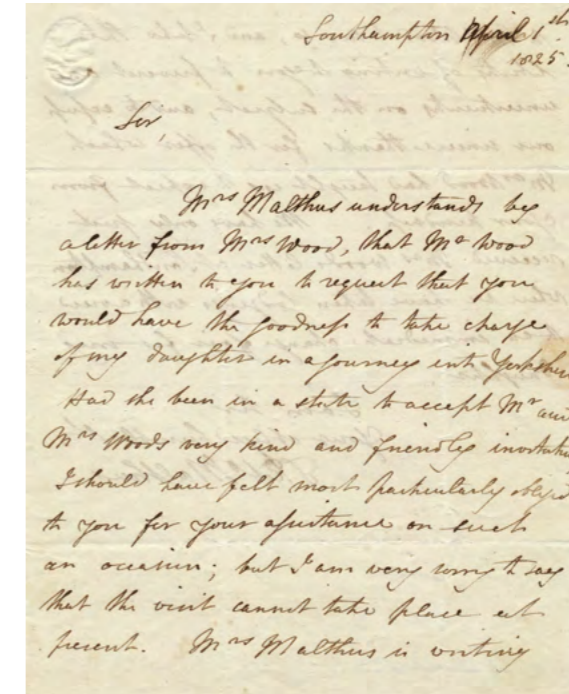 Southampton April 1st
1825.
Sir,
Mrs Malthus understands by
a letter from Mrs Wood, that Mr Wood
has written to you to request that you
would have the goodness to take charge
of my daughter in a journey into Yorkshire
Had she been in a state to accept Mr and
Mrs Woods very kind and friendly invitation
I should have felt most particularly obliged
to you for your assistance on such
an occasion; but I am very sorry to say
that the visit cannot take place at
present. Mrs Malthus is writing